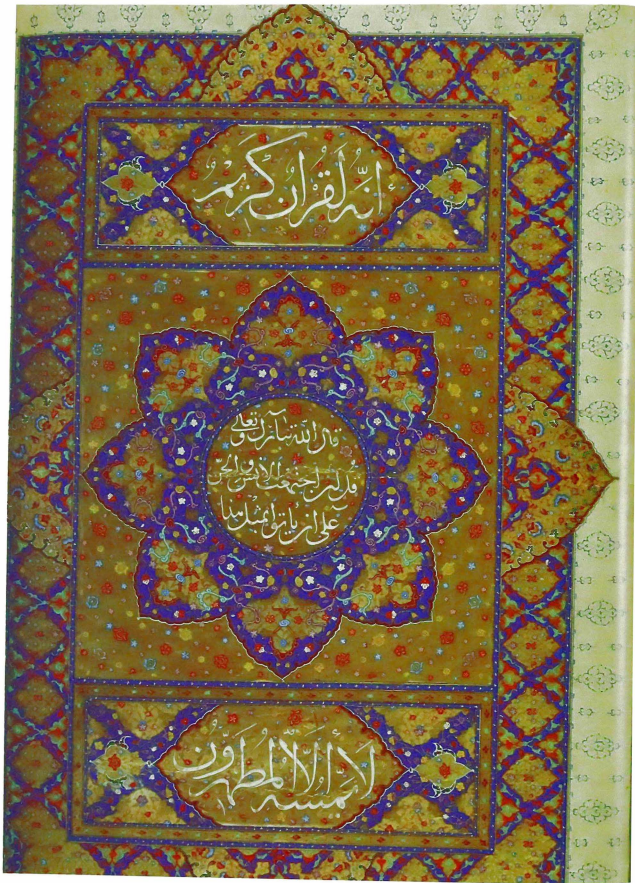 انّه لقرآن كريم
قال الله تبارك وتعالى
قل لئن اجتمعت الإنس والجن
على أن يأتوا بمثل هذا
لا يمسه إلا المطهرون